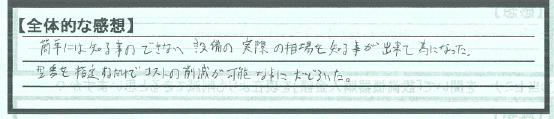 【全体的な感想】
簡単には知る事のできない設備の実際の相場を知る事が出来て為になった。
型番を指定するだけでコストの削減が可能な事におどろいた。